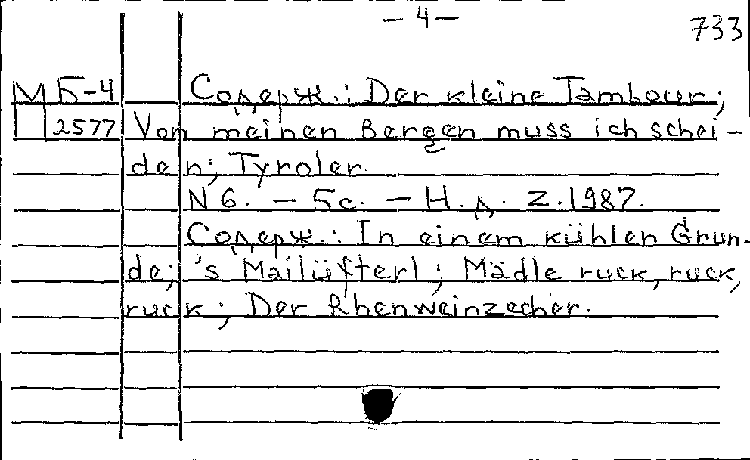 — 4 —
733
М Б-4 Содерж.: Der kleine Tambour;
2577 Von meinen Bergen muss ich schei-
den; Tyroler.
N 6. — 5 с. — Н. д. Z. 1987.
Содерж.: In einem kühlen Grun-
de; 's Mailüfterl; Mädle ruck, ruck,
ruck; Der Rhenweinzecher.